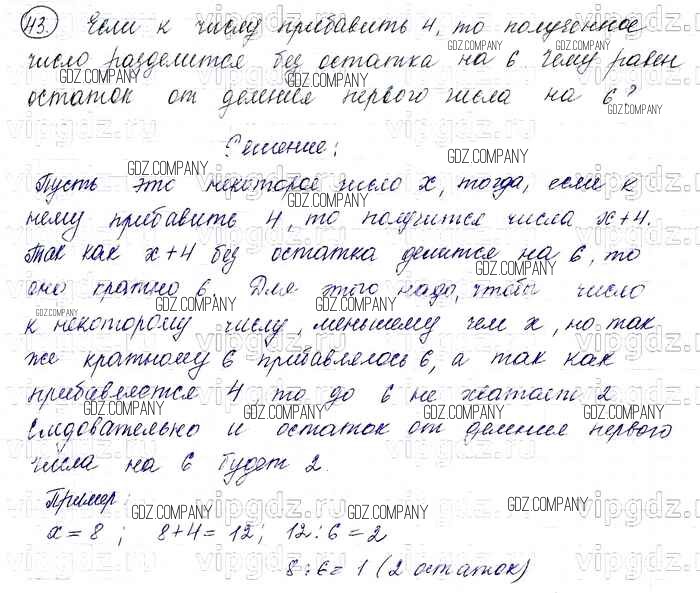 43. Если к числу прибавить 4, то полученное
число разделится без остатка на 6. Чему равен
остаток от деления первого числа на 6?
Решение:
Пусть это некоторое число x, тогда, если к
нему прибавить 4, то получится числа x+4.
Так как x+4 без остатка делится на 6, то
оно кратно 6. Для этого надо, чтобы число
к некоторому числу, меньшему чем x, но так
же кратному 6 прибавлялось 6, а так как
прибавляется 4, то до 6 не хватает 2
Следовательно и остаток от деления первого
числа на 6 будет 2.
Пример:
x = 8 ; 8+4 = 12 ; 12 : 6 = 2
8 : 6 = 1 (2 остаток)
GDZ.COMPANY
vipgdz.ru